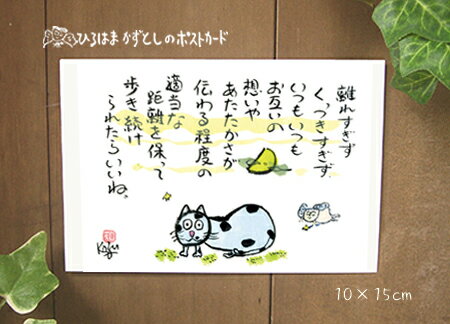 ひろはまかずとしのポストカード
離れすぎず
くっつきすぎず、
いつもいつも
お互いの
想いや
あたたかさが
伝わる程度の
適当な
距離を保って
歩き続け
られたらいいね。
Kazu
10×15cm